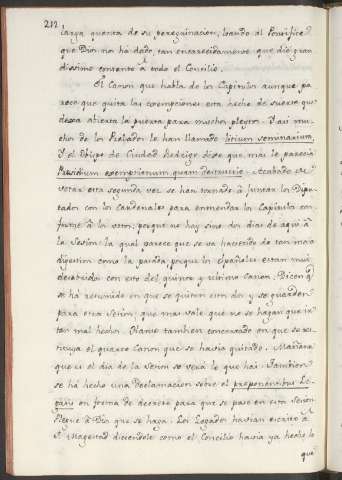 212
larga quenta de su peregrinacion, loando al Pontifice
que Dios nos há dado tan encarecidamente que dió gran
dissimo contento á todo el Concilio.
El Canon que habla de los Capitulos aunque pa
rece que quita las exempciones esta hecho de suerte que
dexa abierta la puerta para muchos pleytos. Y asi mu
chos de los Prelados le han llamado litium seminarium
Y el Obispo de Ciudad Rodrigo dixo que mas le parecia
Presidium exemptionum quam destructio. Acabado de
votar esta segunda vez se han tornado á juntar los Dipu
tados con los Cardenales para enmendar los Capitulos con
forme á los votos, porque no hay sino dos dias de aqui á
la Sesion: la qual parece que se va haciendo de tan mala
digestion como la pasada, porque los Españoles estan mui
desabridos con esto del quinto y ultimo Canon. Dicen q.
se há resumido en que se quiten estos dos y se guarden
para otra Sesion, que mas vale que no se hagan que es
tar mal hechos. Hanse tambien concertado en que se res
tituya el quarto Canon que se havia quitado. Mañana
que es el dia de la Sesion se verá lo que hai. Tambien
se há hecho una Declaracion sobre el proponentibus Le-
gatis en forma de decreto para que se pase en esta Sesion
Plegue á Dios que se haga. Los Legados havian escrito á
S. Magestad diciendole como el Concilio havia ya hecho lo
que